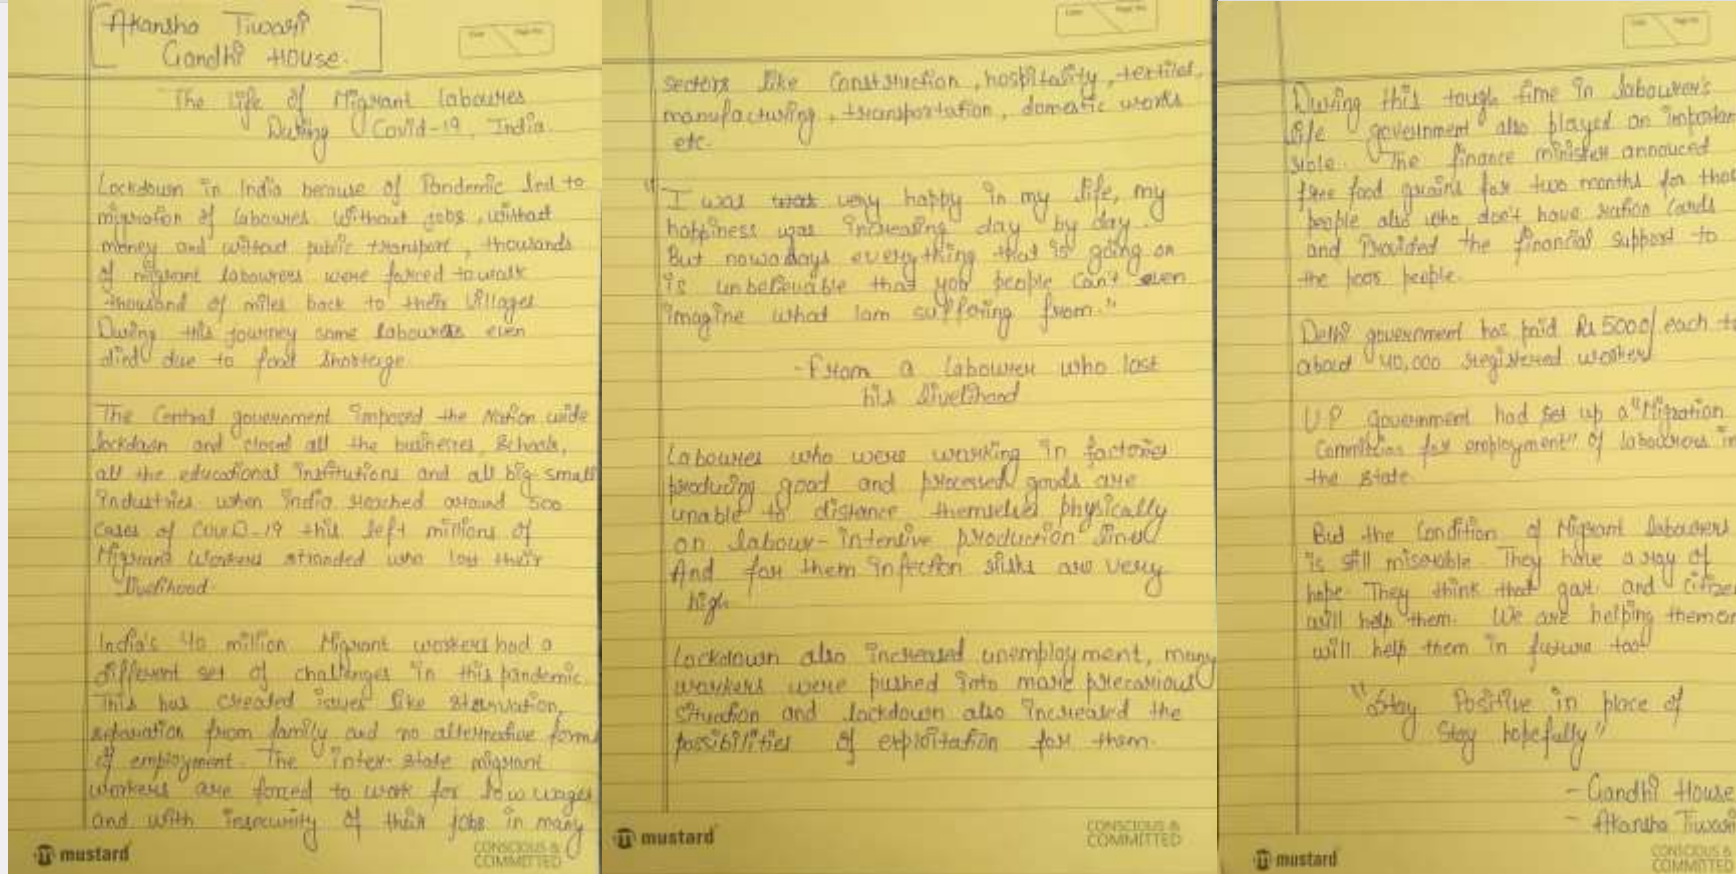 Akansha Tiwari
Gandhi House.
The life of Migrant laboures
During Covid-19, India.
Lockdown in India because of Pandemic led to
migration of laboures without jobs, without
money and without public transport, thousands
of migrant labourers were forced to walk
thousand of miles back to their villages
During this journey some labourers even
died due to food shortage
The Central government imposed the Nation wide
lockdown and closed all the businesses, schools,
all the educational institutions and all big-small
industries when India reached around 500
cases of Covid-19 this left millions of
Migrant Workers stranded who lost their
livelihood.
India's 40 million Migrant workers had a
different set of challenges in this pandemic
This has created issues like starvation,
separation from family and no alternative forms
of employment. The inter-state migrant
workers are forced to work for low wages
and with insecurity of their jobs in many
mustard
CONSCIOUS &
COMMITTED
sectors like construction, hospitality, textiles,
manufacturing, transportation, domestic works
etc.
"I was very happy in my life, my
happiness was increasing day by day.
But nowadays everything that is going on
is unbelievable that you people can't even
imagine what Iam suffering from."
-From a Labourer who lost
his livelihood
Laboures who were working in factories
producing good and processed goods are
unable to distance themselves physically
on labour-intensive production lines
And for them infection risks are very
high
Lockdown also increased unemployment, many
workers were pushed into more precarious
situation and lockdown also increased the
possibilities of exploitation for them.
mustard
CONSCIOUS &
COMMITTED
During this tough time in labourer's
life government also played an importan
role. The finance minister annouced
free food grains for two months for thos
people also who don't have ration cards
and Provided the financial support to
the poor people.
Delhi government has paid Rs 5000/ each to
about 40,000 registered worker
U.P government had set up a "Migration
Commission for employment" of labourers in
the state
But the condition of Migrant labourers
is still miserable. They have a ray of
hope. They think that govt. and citizen
will help them. We are helping them an
will help them in future too
"Stay Positive in place of
Stay hopefully"
- Gandhi House
- Akansha Tiwari
mustard
CONSCIOUS &
COMMITTED